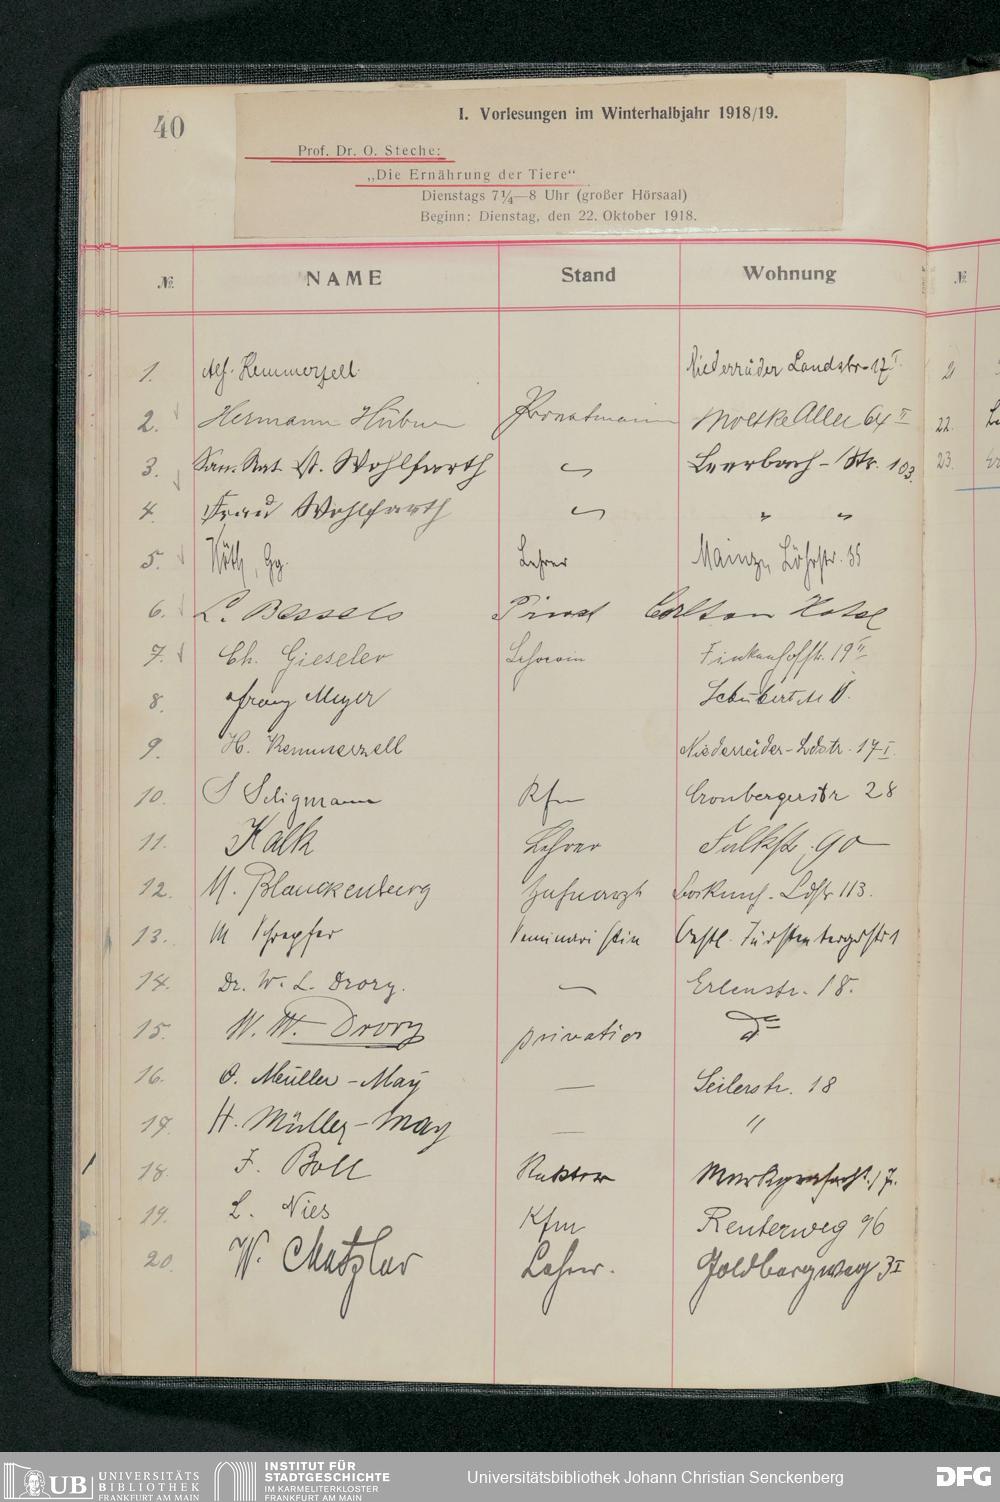 40
I. Vorlesungen im Winterhalbjahr 1918/19.
Prof. Dr. O. Steche:
„Die Ernährung der Tiere“
Dienstags 7¼—8 Uhr (großer Hörsaal)
Beginn: Dienstag, den 22. Oktober 1918.
№ NAME Stand Wohnung №
1. Alf. Kemmerzell Niederräder Landstr. 17 I
2. Hermann Hübner Privatmann Moltke Allee 64 II 22.
3. San. Rat Wohlfarth Leerbach-Str. 103. 23.
4. Frau Wohlfarth " "
5. Köth, Gg. Lehrer Mainz, Löhrstr. 35
6. L. Bessels Privat Carlton Hotel
7. Ch. Gieseler Lehrerin Finkenhofstr. 19 II
8. Franz Meyer
9. H. Kemmerzell Niederräder-Ldstr. 17 I.
10. S Seligmann Kfm Cronbergerstr 28
11. Kalk Lehrer Falkstr. 90
12. M. Blanckenburg Zahnarzt Ldstr 113.
13. M Schrepfer Seminaristin Oestl. Fürstenbergerstr 1
14. Dr. W. L. Drory. — Erlenstr. 18.
15. W. W. Drory privatier do
16. O. Müller-May — Seilerstr. 18
17. H. Müller-May — "
18. F. Boll Rektor 17.
19. L. Nies Kfm Reuterweg 96
20. W. Metzlar Lehrer. Goldbergweg 3 I
UB UNIVERSITÄTS
BIBLIOTHEK
FRANKFURT AM MAIN
INSTITUT FÜR
STADTGESCHICHTE
IM KARMELITERKLOSTER
FRANKFURT AM MAIN
Universitätsbibliothek Johann Christian Senckenberg
DFG